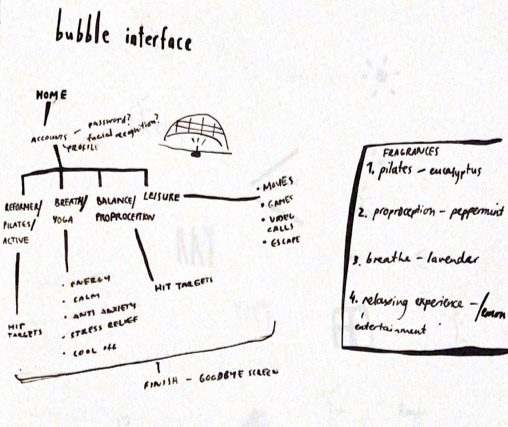 bubble interface
HOME
ACCOUNTS - password?
facial recognition?
PROFILE
REFORMER/
PILATES/
ACTIVE
BREATH/
YOGA
BALANCE/
PROPROCEPTION
LEISURE
• MOVIES
• GAMES
• VIDEO
CALLS
• ESCAPE
HIT
TARGETS
• ENERGY
• CALM
• ANTI ANXIETY
• STRESS RELIEF
• COOL OFF
HIT TARGETS
FINISH - GOODBYE SCREEN
FRAGRANCES
1. pilates - eucalyptus
2. proproception - peppermint
3. breathe - lavendar
4. relaxing experience -/lemon
entertainment